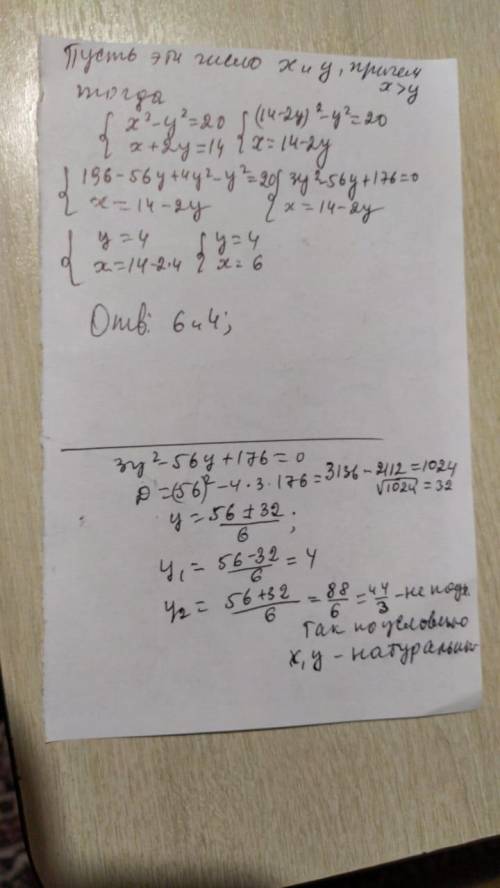 Пусть эти число x и y, причем
x>y
тогда
{ x²-y²=20 { (14-2y)²-y²=20
x+2y=14 x=14-2y
{ 196-56y+4y²-y²=20 { 3y²-56y+176=0
x=14-2y x=14-2y
{ y=4 { y=4
x=14-2·4 x=6
Отв: 6 и 4;
3y²-56y+176=0
D=(56)²-4·3·176=3136-2112=1024
√1024=32
y=56±32/6;
y₁=56-32/6=4
y₂=56+32/6=88/6=44/3-не подх.
Так по условию
x,y-натуральные